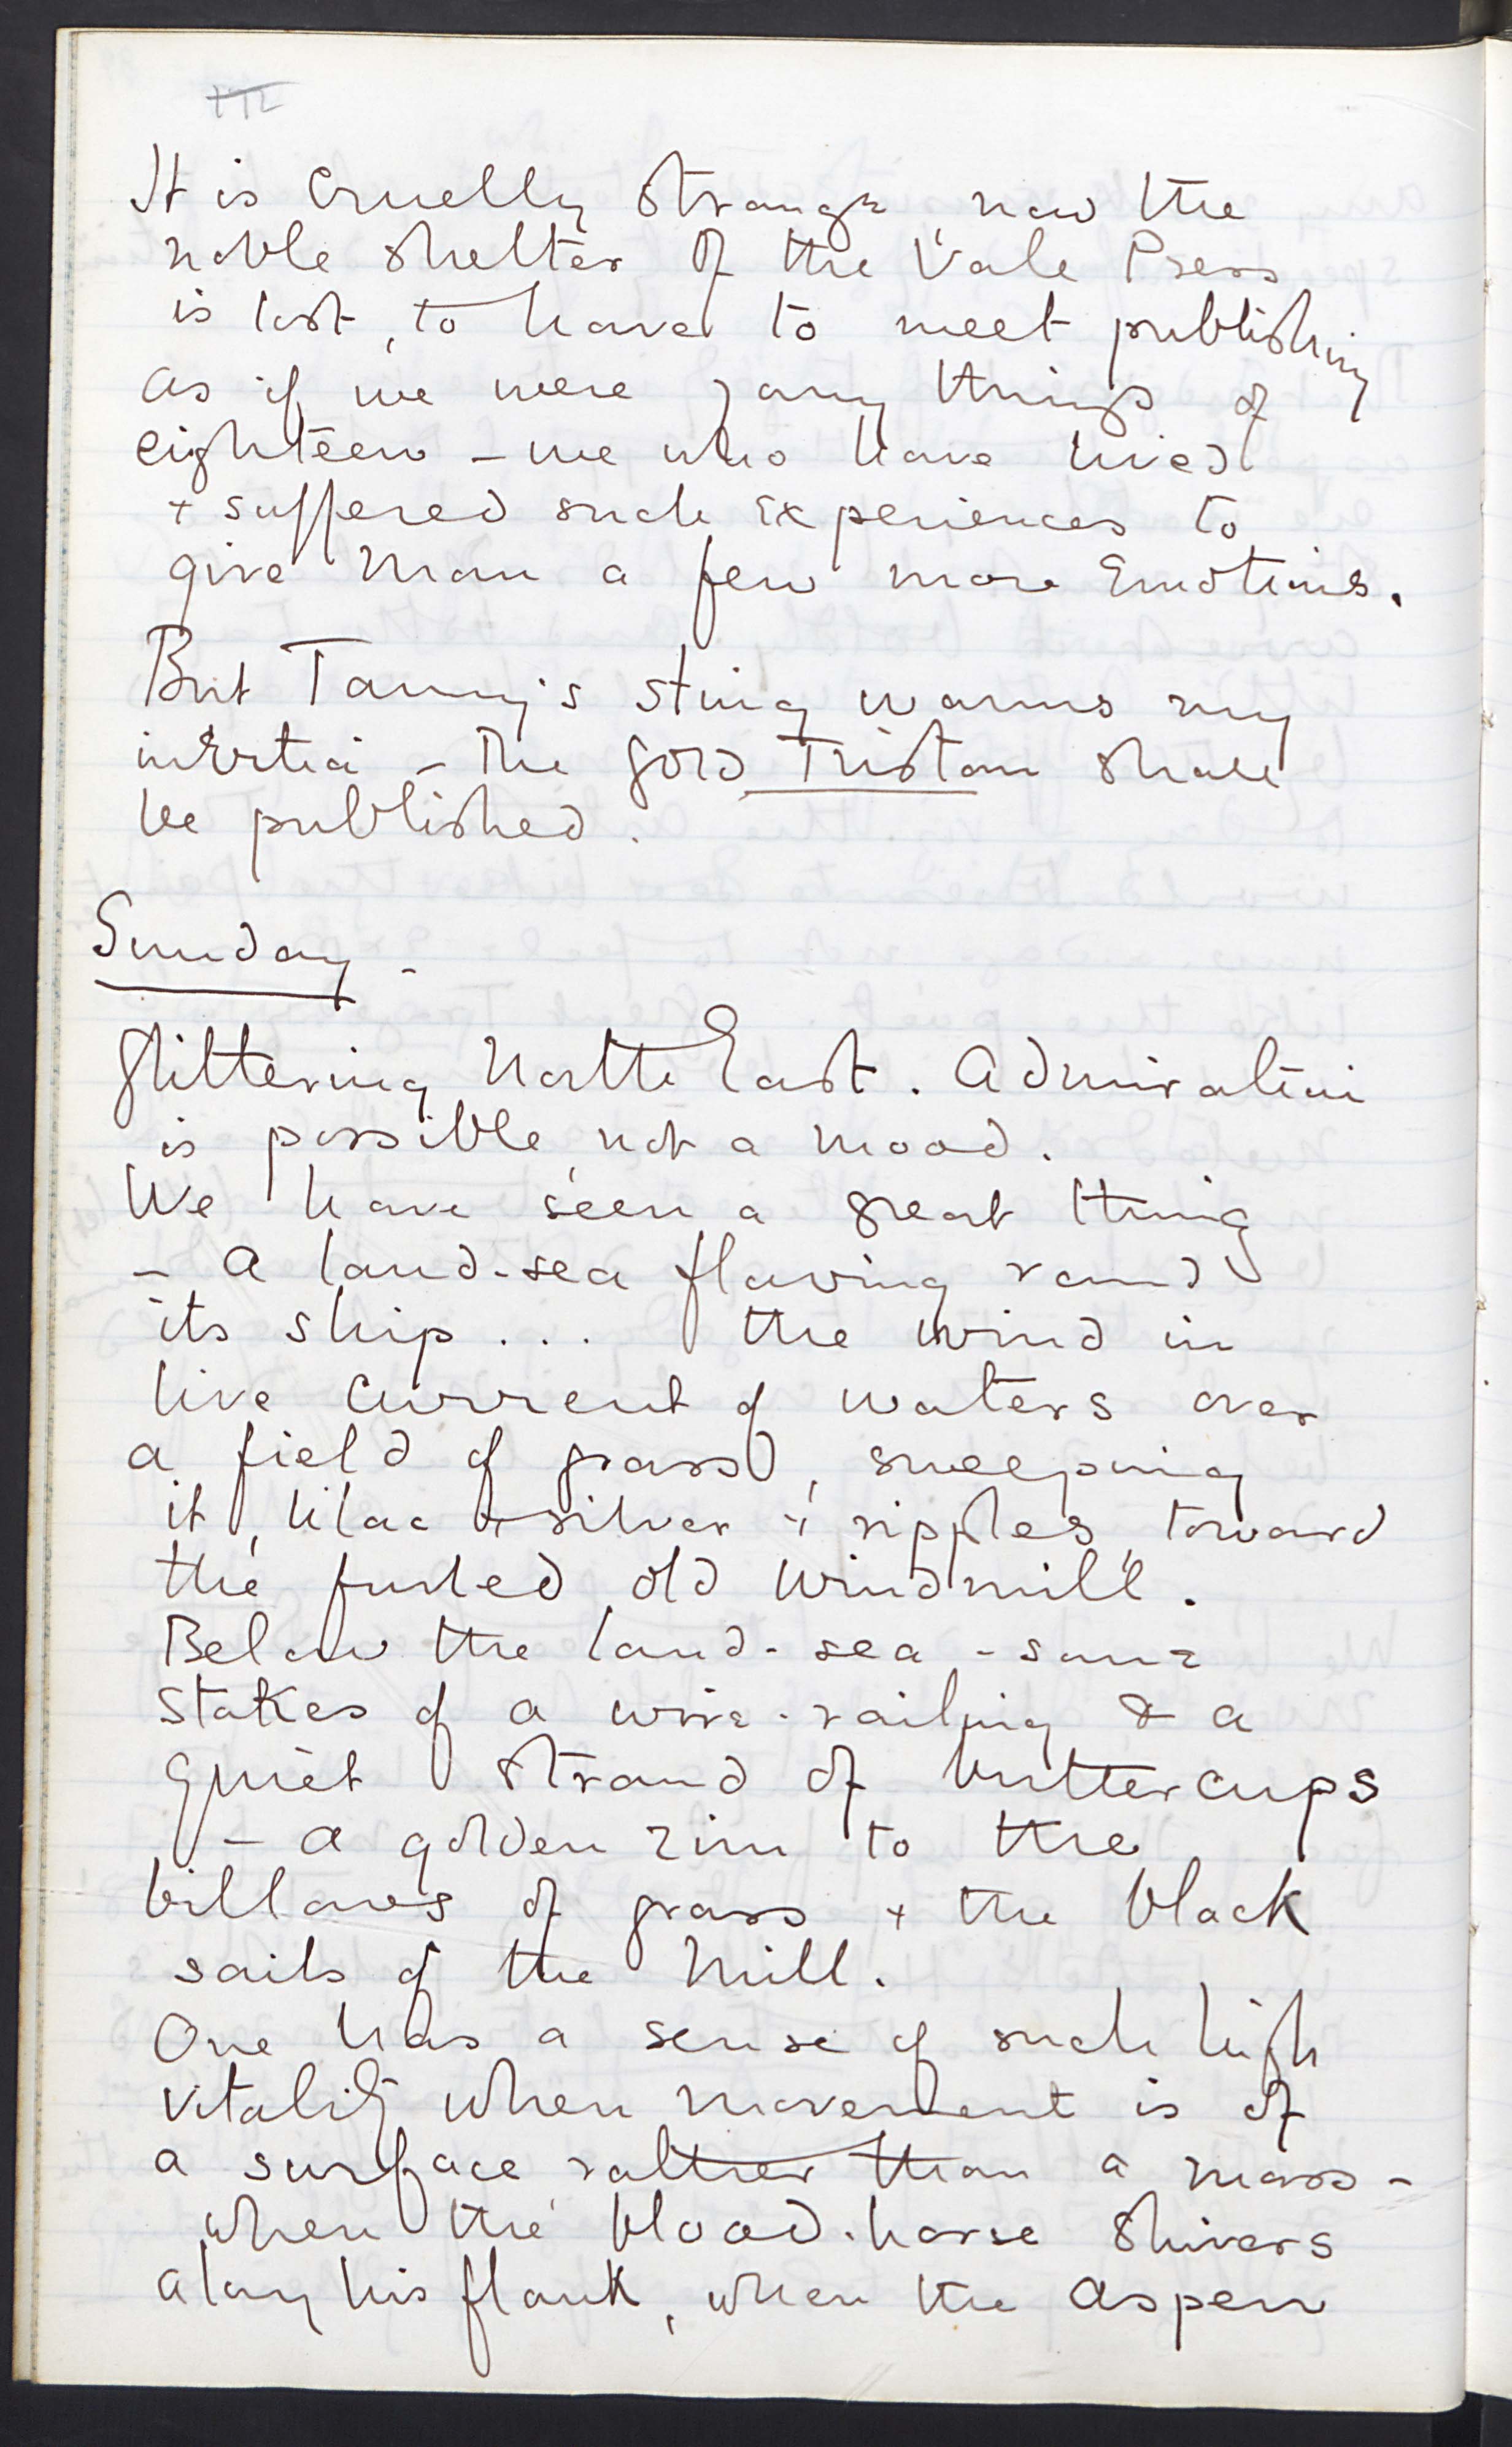 It is cruelly strange, now the
noble shelter of the Vale Press
is lost, to have to meet publishing
as if we were young things of
eighteen – we who have lived
+ suffered such experiences to
give Man a few more Emotions.
But Tanny's sting warms my
inertia – The good Tristan shall
be published.
Sunday –
Glittering North East. Admiration
is possible, not a mood.
We have seen a great thing
– a land-sea flowing round
its ship . . . the wind in
live current of waters over
a field of grass, sweeping
it, lilac & silver i' ripples, toward
the furled, old Windmill.
Below the land-sea – some
stakes of a wire-railing & a
quiet strand of buttercups
– a golden rim to the
billows of grass + the black
sails of the Mill.
One has a sense of such high
vitality when movement is of
a surface rather than a mass –
when the blood-horse shivers
along his flank, when the aspen